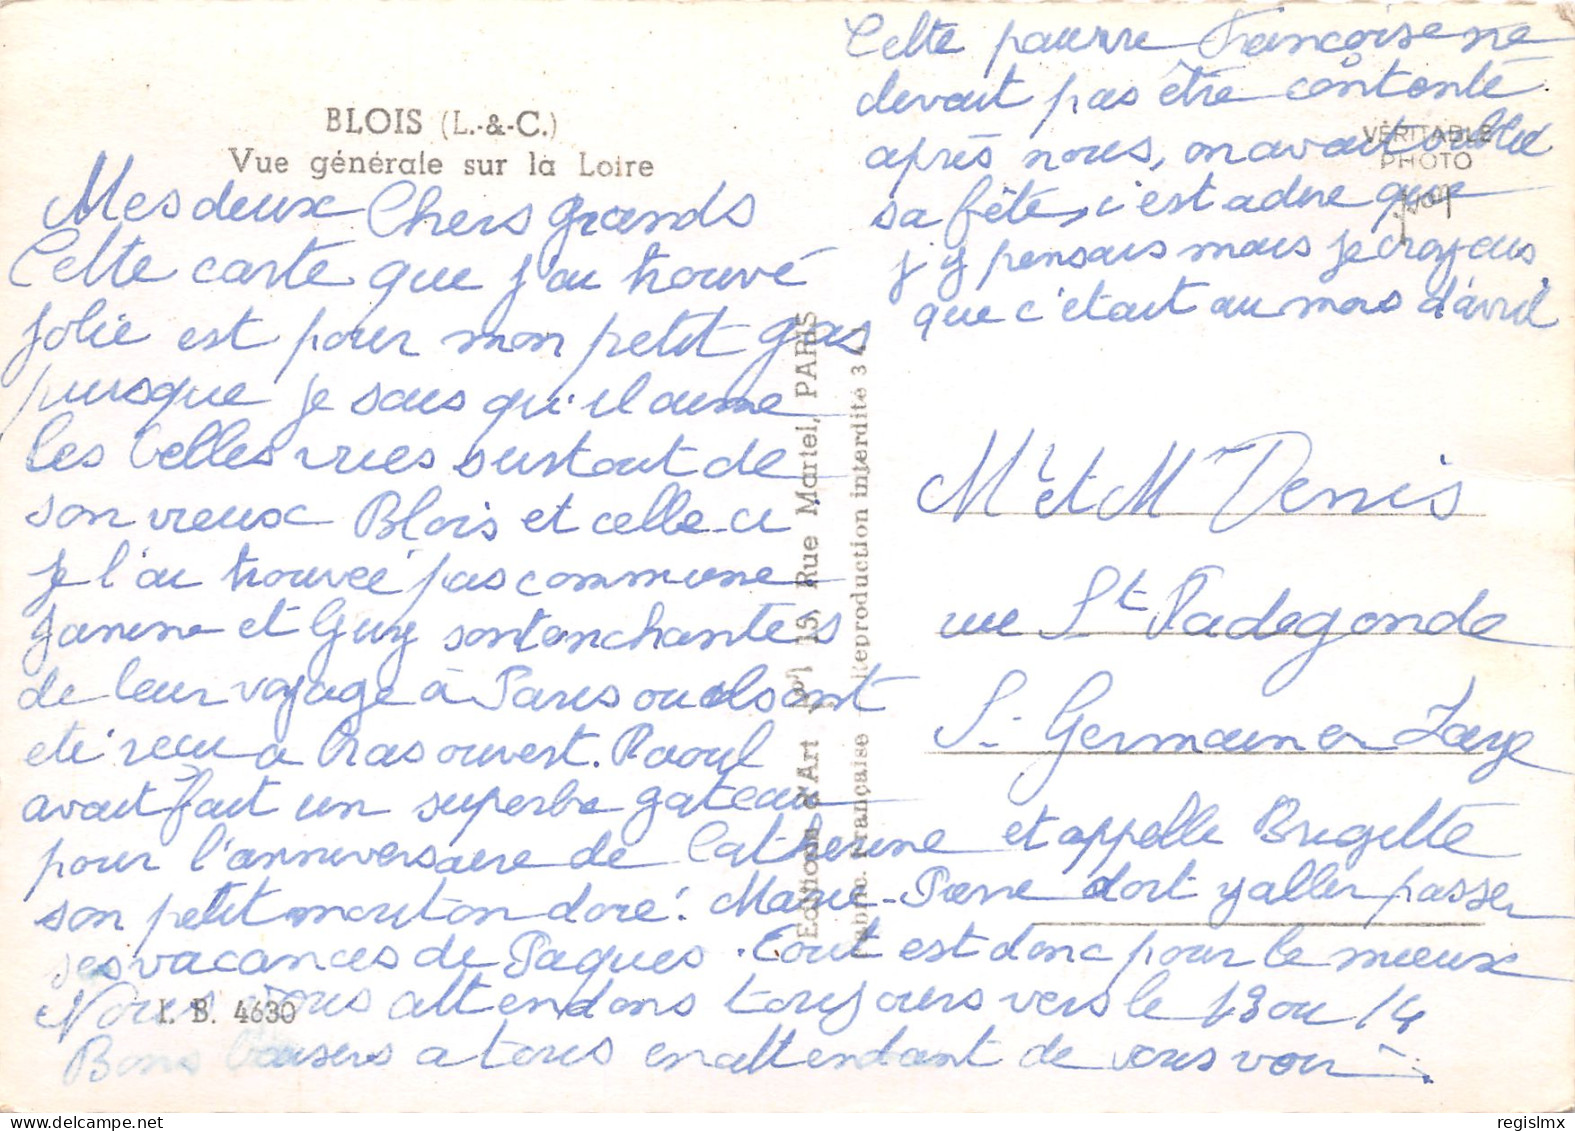 BLOIS (L.-&-C.)
Vue générale sur la Loire
Mes deux Chers Grands
Cette carte que j'ai trouvé
jolie est pour mon petit gars
puisque je sais qu'il aime
les belles vues surtout de
son vieux Blois et celle-ci
je l'ai trouvée pas commune
Janine et Guy sont enchantés
de leur voyage à Paris où ils ont
été reçu à bras ouvert. Raoul
avait fait un superbe gateau
pour l'anniversaire de Catherine et appelle Brigitte
son petit mouton doré. Marie-Pierre doit y aller passer
ses vacances de Paques. Tout est donc pour le mieux
Nous vous attendons toujours vers le 13 ou 14
Bons baisers a tous en attendant de vous voir
I. B. 4630
Editions d'Art 15, Rue Martel, PARIS
Fabric. Française Reproduction interdite 3 4
Cette pauvre Françoise ne
devait pas être contente
après nous, on avait oublié
sa fête, c'est a dire que
j'y pensais mais je croyais
que c'était au mois d'avril
VÉRITABLE
PHOTO
Yvon
Mr et Mme Denis
rue St Radegonde
St Germain en Laye